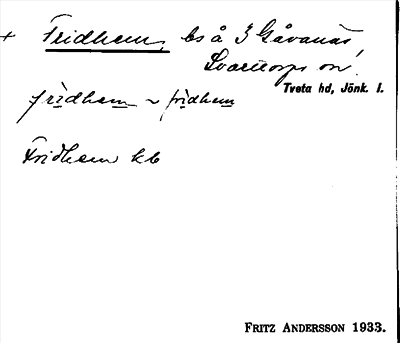 + Fridhem, bs å 3 Gåvanäs,
Svarttorps sn.
Tveta hd, Jönk. l.
frìdhem ~ frìdhem
Fridhem kb
FRITZ ANDERSSON 1933.